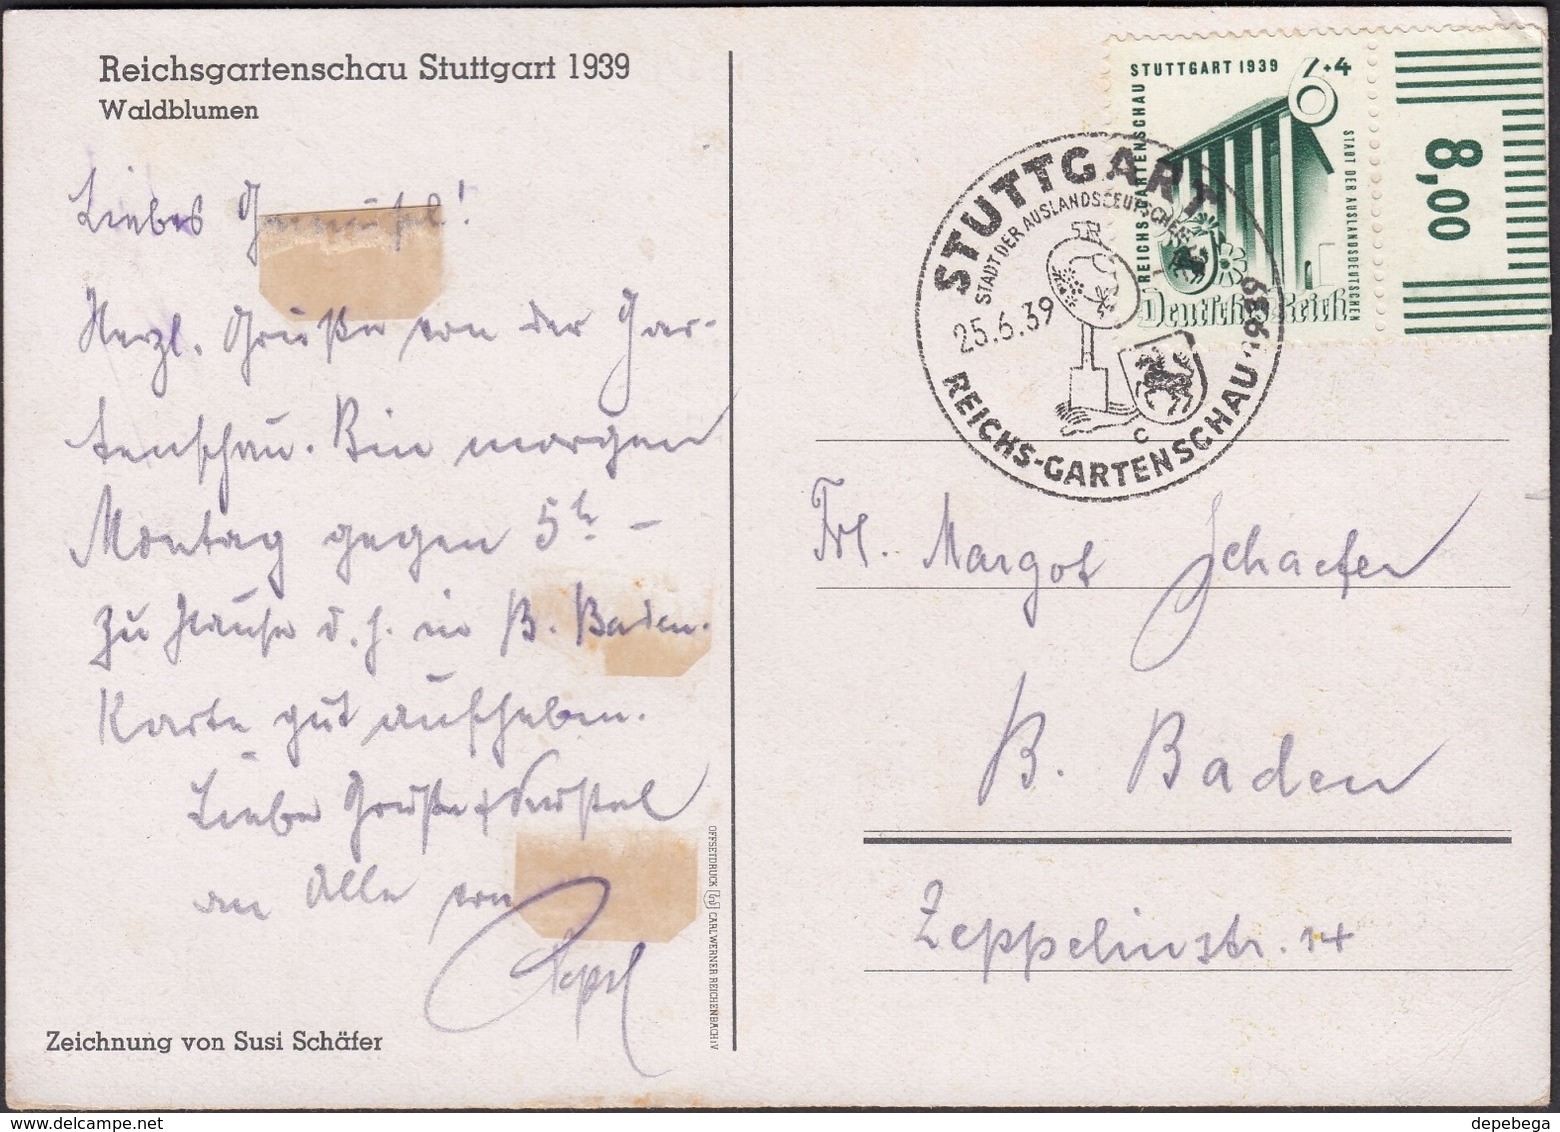 Reichsgartenschau Stuttgart 1939
Waldblumen
Liebes
Herzl. Grüße von der Gar-
tenschau. Bin morgen
Montag gegen 5h –
zu Hause d. h. in B. Baden.
Karte gut aufheben.
Liebe Grüße &
an Alle von
Zeichnung von Susi Schäfer
OFFSETDRUCK CARL WERNER REICHENBACH i V
STUTTGART 1939
6+4
REICHSGARTENSCHAU
STADT DER AUSLANDSDEUTSCHEN
Deutsches Reich
8,00
STUTTGART
STADT DER AUSLANDSDEUTSCHEN
25.6.39
C
REICHS-GARTENSCHAU. 1939
Frl. Margot Schaefer
B. Baden
Zeppelinstr. 14
depebega